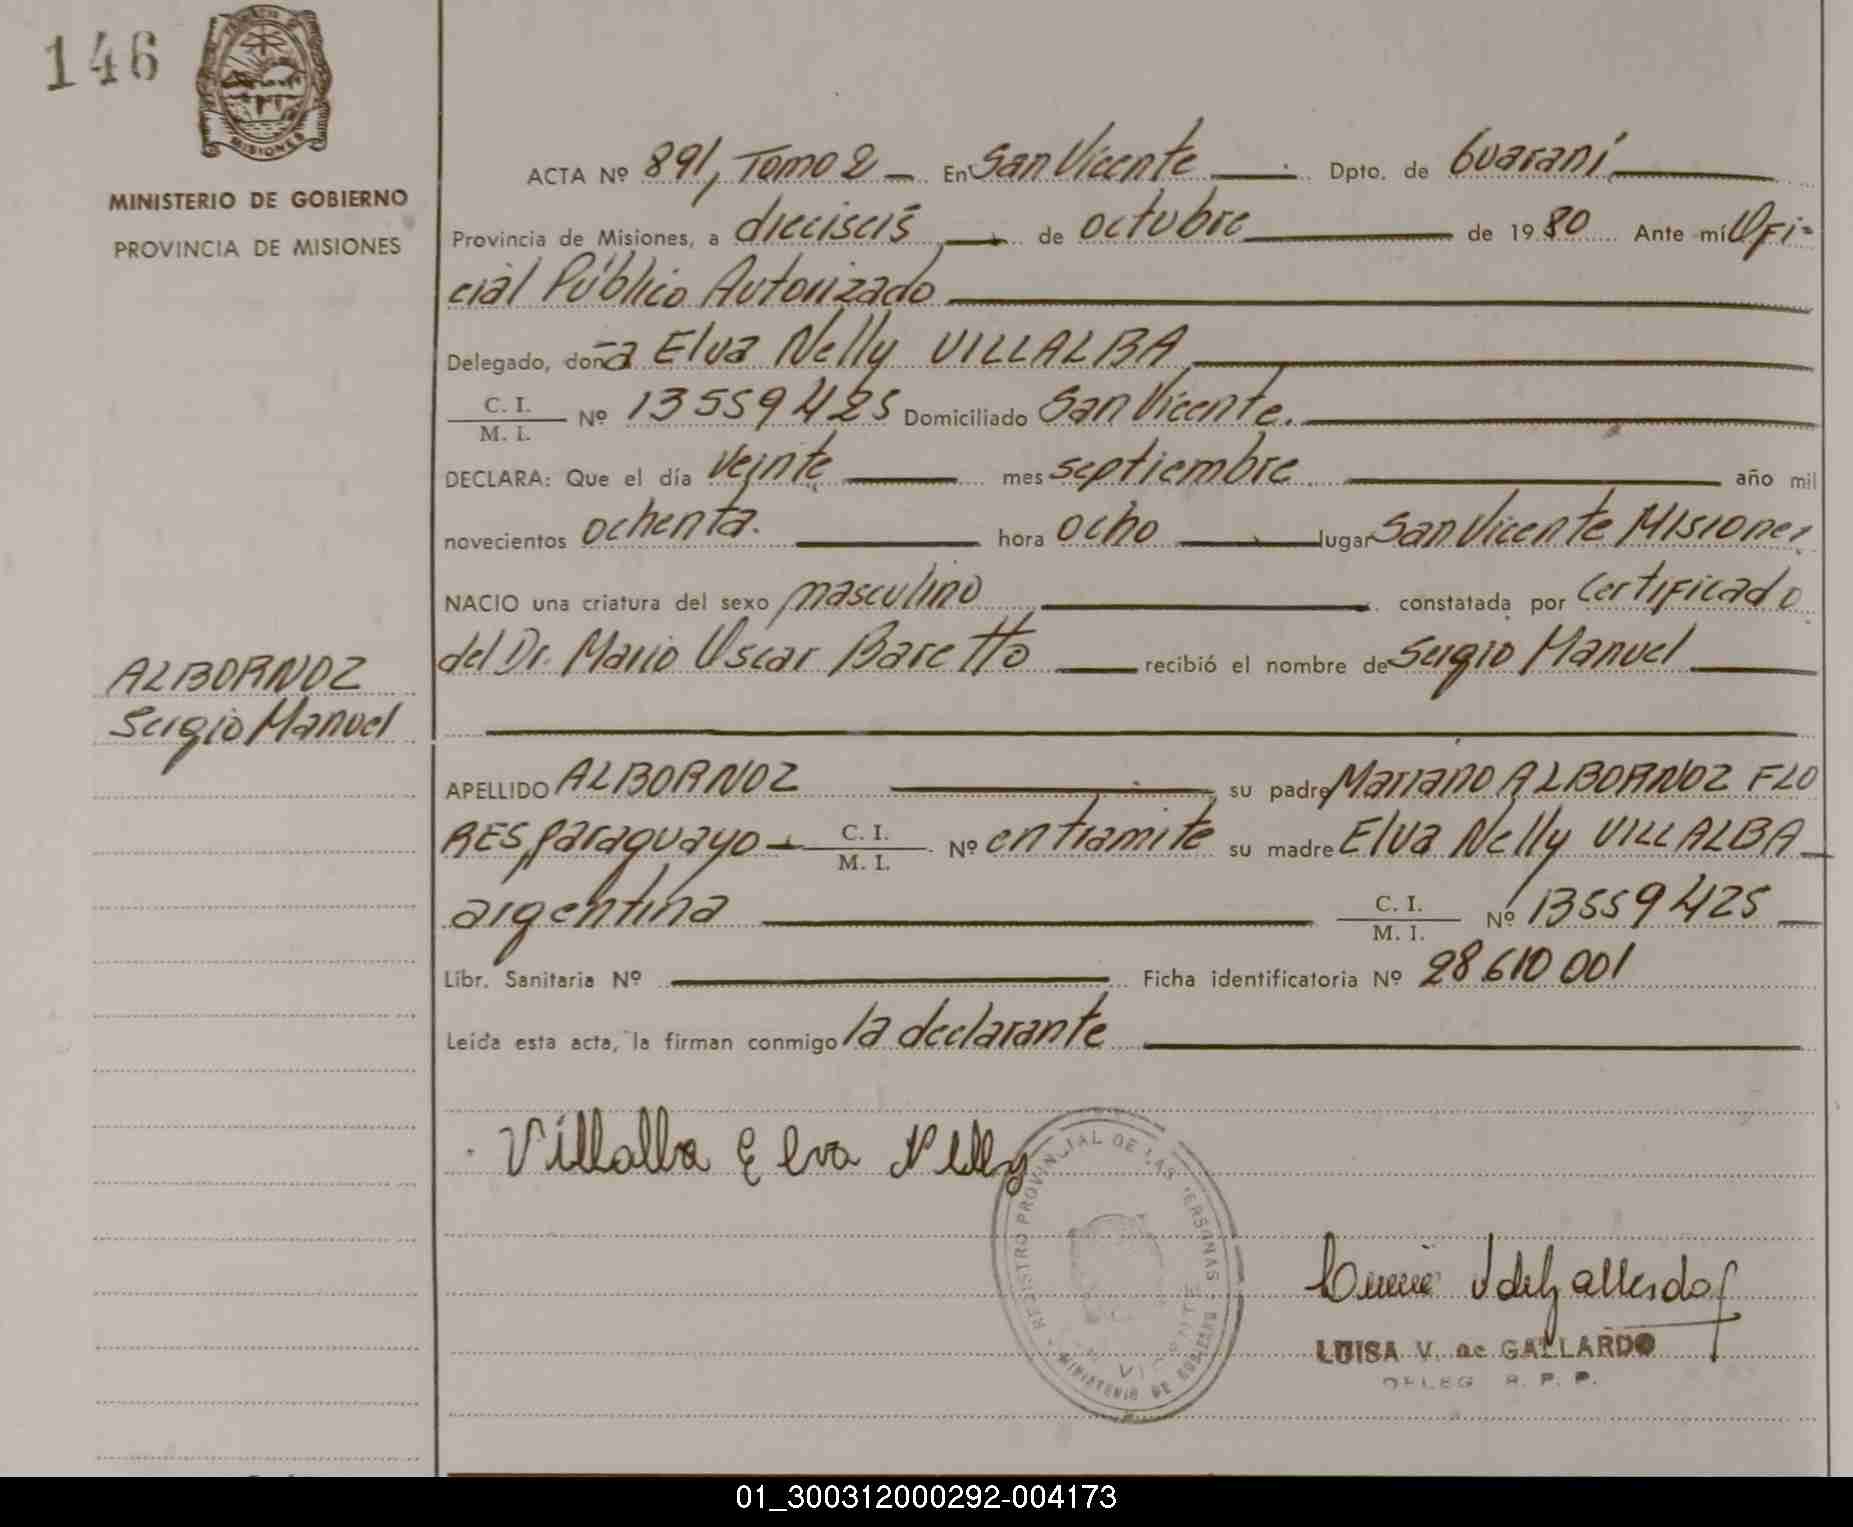 146
MISIONES
MINISTERIO DE GOBIERNO
PROVINCIA DE MISIONES
ALBORNOZ
Sergio Manuel
ACTA Nº 891, Tomo 2 En San Vicente Dpto. de Guaraní
Provincia de Misiones, a dieciseis de octubre de 1980 Ante mí Ofi-
cial Público Autorizado
Delegado, doña Elva Nelly VILLALBA
C. I.
M. I. Nº 13559425 Domiciliado San Vicente.
DECLARA: Que el día veinte mes septiembre año mil
novecientos ochenta. hora ocho lugar San Vicente Misiones
NACIO una criatura del sexo masculino constatada por certificado
del Dr. Mario Oscar Baretto recibió el nombre de Sergio Manuel
APELLIDO ALBORNOZ su padre Mariano ALBORNOZ FLO
RES, paraguayo C. I.
M. I. Nº en tramite su madre Elva Nelly VILLALBA
argentina C. I.
M. I. Nº 13559425
Libr. Sanitaria Nº Ficha identificatoria Nº 28610001
Leída esta acta, la firman conmigo la declarante
Villalba Elva Nelly
REGISTRO PROVINCIAL DE LAS PERSONAS
MINISTERIO DE GOBIERNO
LUISA V. de GALLARDO
DELEG R. P. P.
01_300312000292-004173